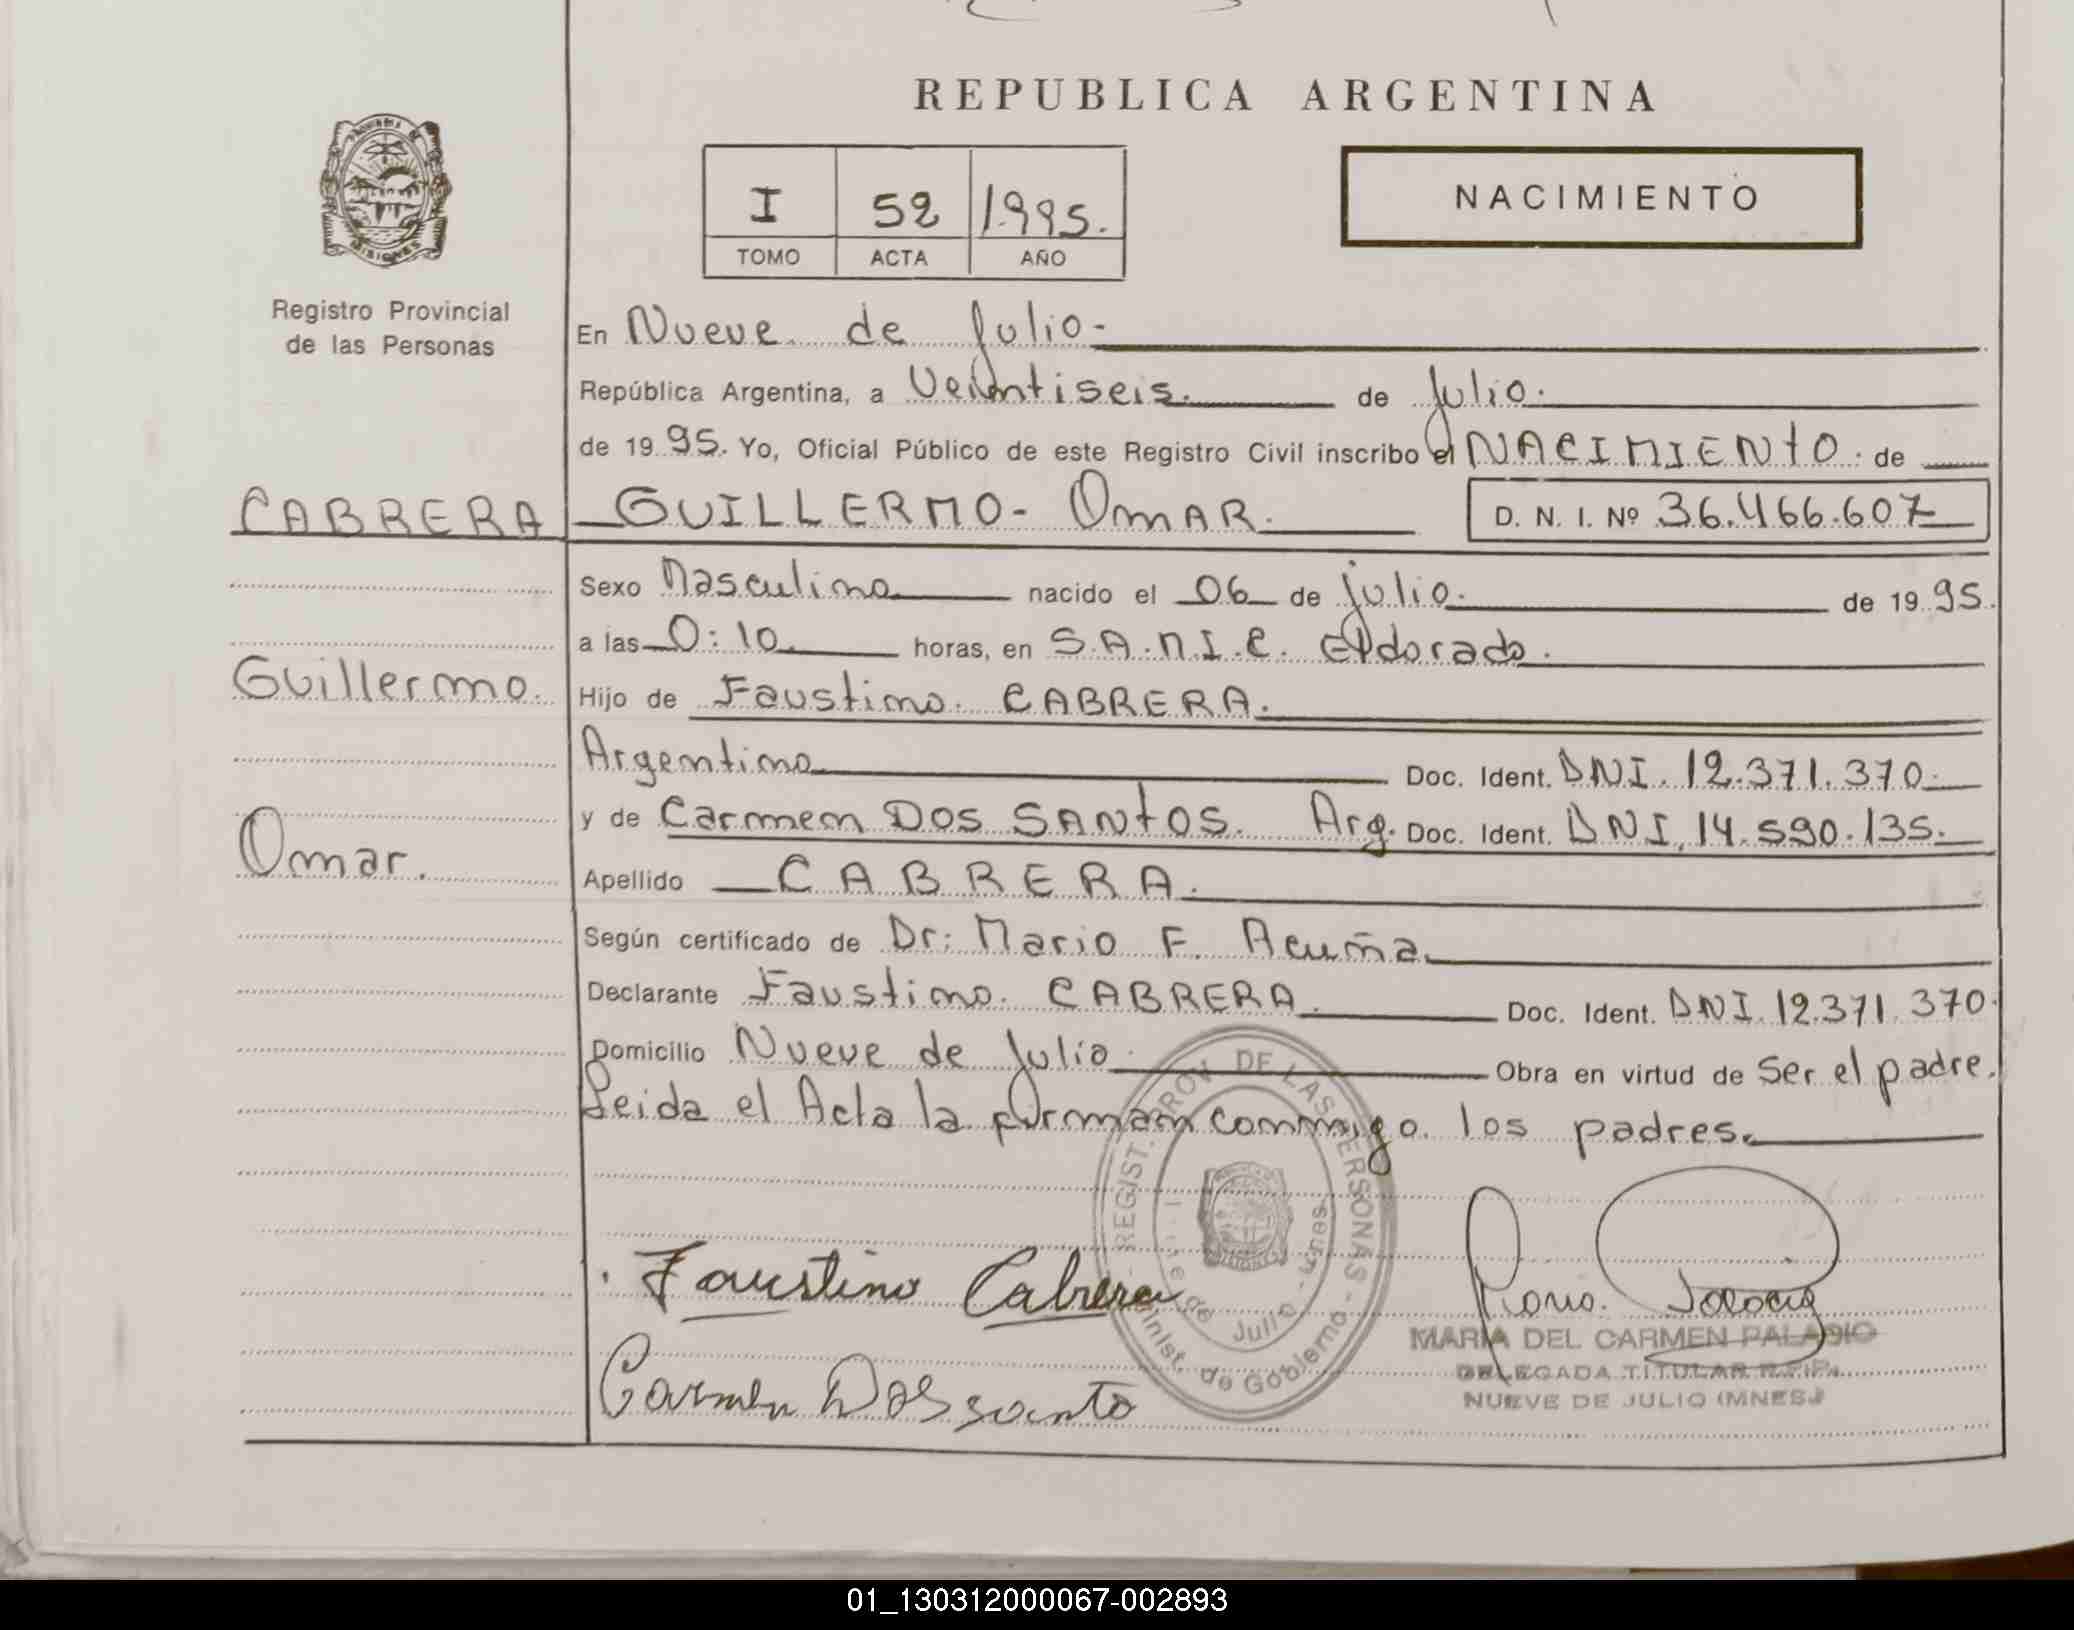 REPUBLICA ARGENTINA
I 52 1.995.
TOMO ACTA AÑO
NACIMIENTO
PROVINCIA DE MISIONES
Registro Provincial
de las Personas
CABRERA
Guillermo.
Omar.
En Nueve de Julio-
República Argentina, a Veintiseis. de Julio.
de 1995. Yo, Oficial Público de este Registro Civil inscribo el NACIMIENTO. de
GUILLERMO- OMAR. D. N. I. Nº 36.466.607
Sexo Masculino nacido el 06 de julio. de 1995.
a las 0:10 horas, en S.A.M.I.C. Eldorado.
Hijo de Faustino. CABRERA.
Argentino Doc. Ident. DNI. 12.371.370.
y de Carmen DOS SANTOS. Arg. Doc. Ident. DNI. 14.590.135.
Apellido CABRERA.
Según certificado de Dr: Mario F. Acuña.
Declarante Faustino. CABRERA. Doc. Ident. DNI. 12.371.370.
Domicilio Nueve de Julio. Obra en virtud de Ser el padre.
Leida el Acta la firman conmigo los padres.
REGIST. PROV. DE LAS PERSONAS - Minist. de Gobierno -
de Julio - Mnes.
Faustino Cabrera
Carmen Dos santo
MARIA DEL CARMEN PALACIO
DELEGADA TITULAR R.P.P.
NUEVE DE JULIO (MNES.)
01_130312000067-002893